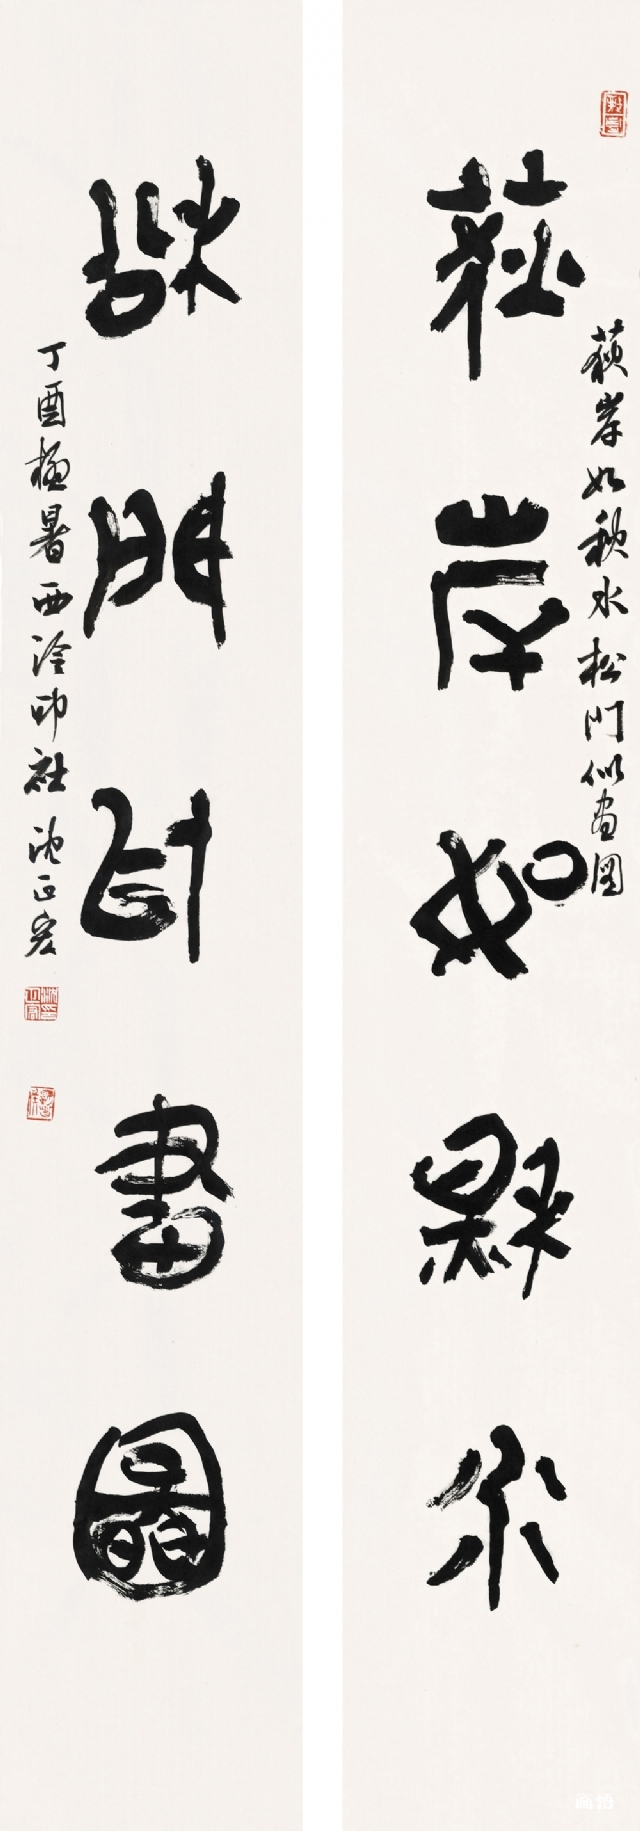 荻岸如秋水
荻岸如秋水松門似畫圖
松門似畫圖
丁酉極暑西泠印社 沈正宏